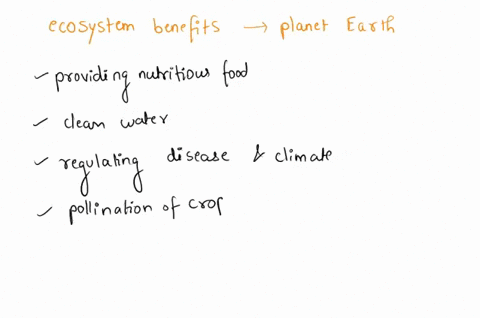 ecosystem benefits → planet Earth
✓ providing nutritious food
✓ clean water
✓ regulating disease & climate
✓ pollination of crop